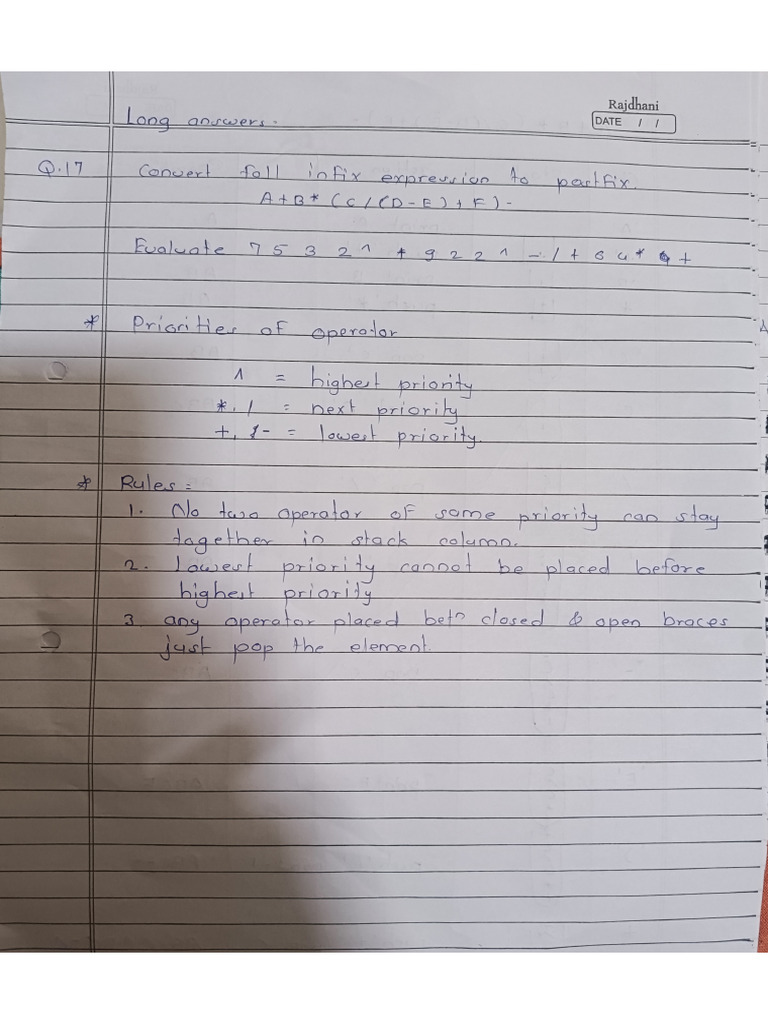 Rajdhani
DATE / /
Long answers.
Q.17 Convert foll infix expression to postfix.
A+B* (C/(D-E)+F)-
Evaluate 7 5 3 2 ^ * 9 2 2 ^ - / + 6 4 * +
* Priorities of operator
^ = highest priority
*, / = next priority
+, - = lowest priority.
* Rules =
1. No two operator of same priority can stay
together in stack column.
2. lowest priority cannot be placed before
highest priority
3. any operator placed betn closed & open braces
just pop the element.